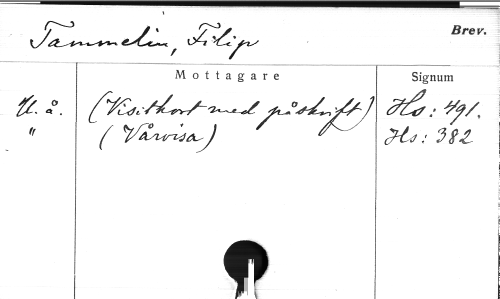 Tammelin, Filip
Brev.
Mottagare
Signum
U. å. (Visitkort med påskrift) Hs: 491.
" (Vårvisa) Hs: 382